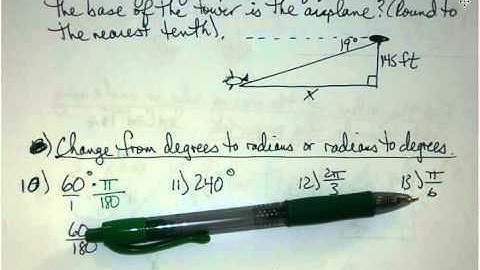 the base of the tower is the airplane? (Round to
the nearest tenth).
19°
145 ft
x
Change from degrees to radians or radians to degrees.
10) 60° · π
1 180
11) 240°
12) 2π
3
13) π
6
60
180